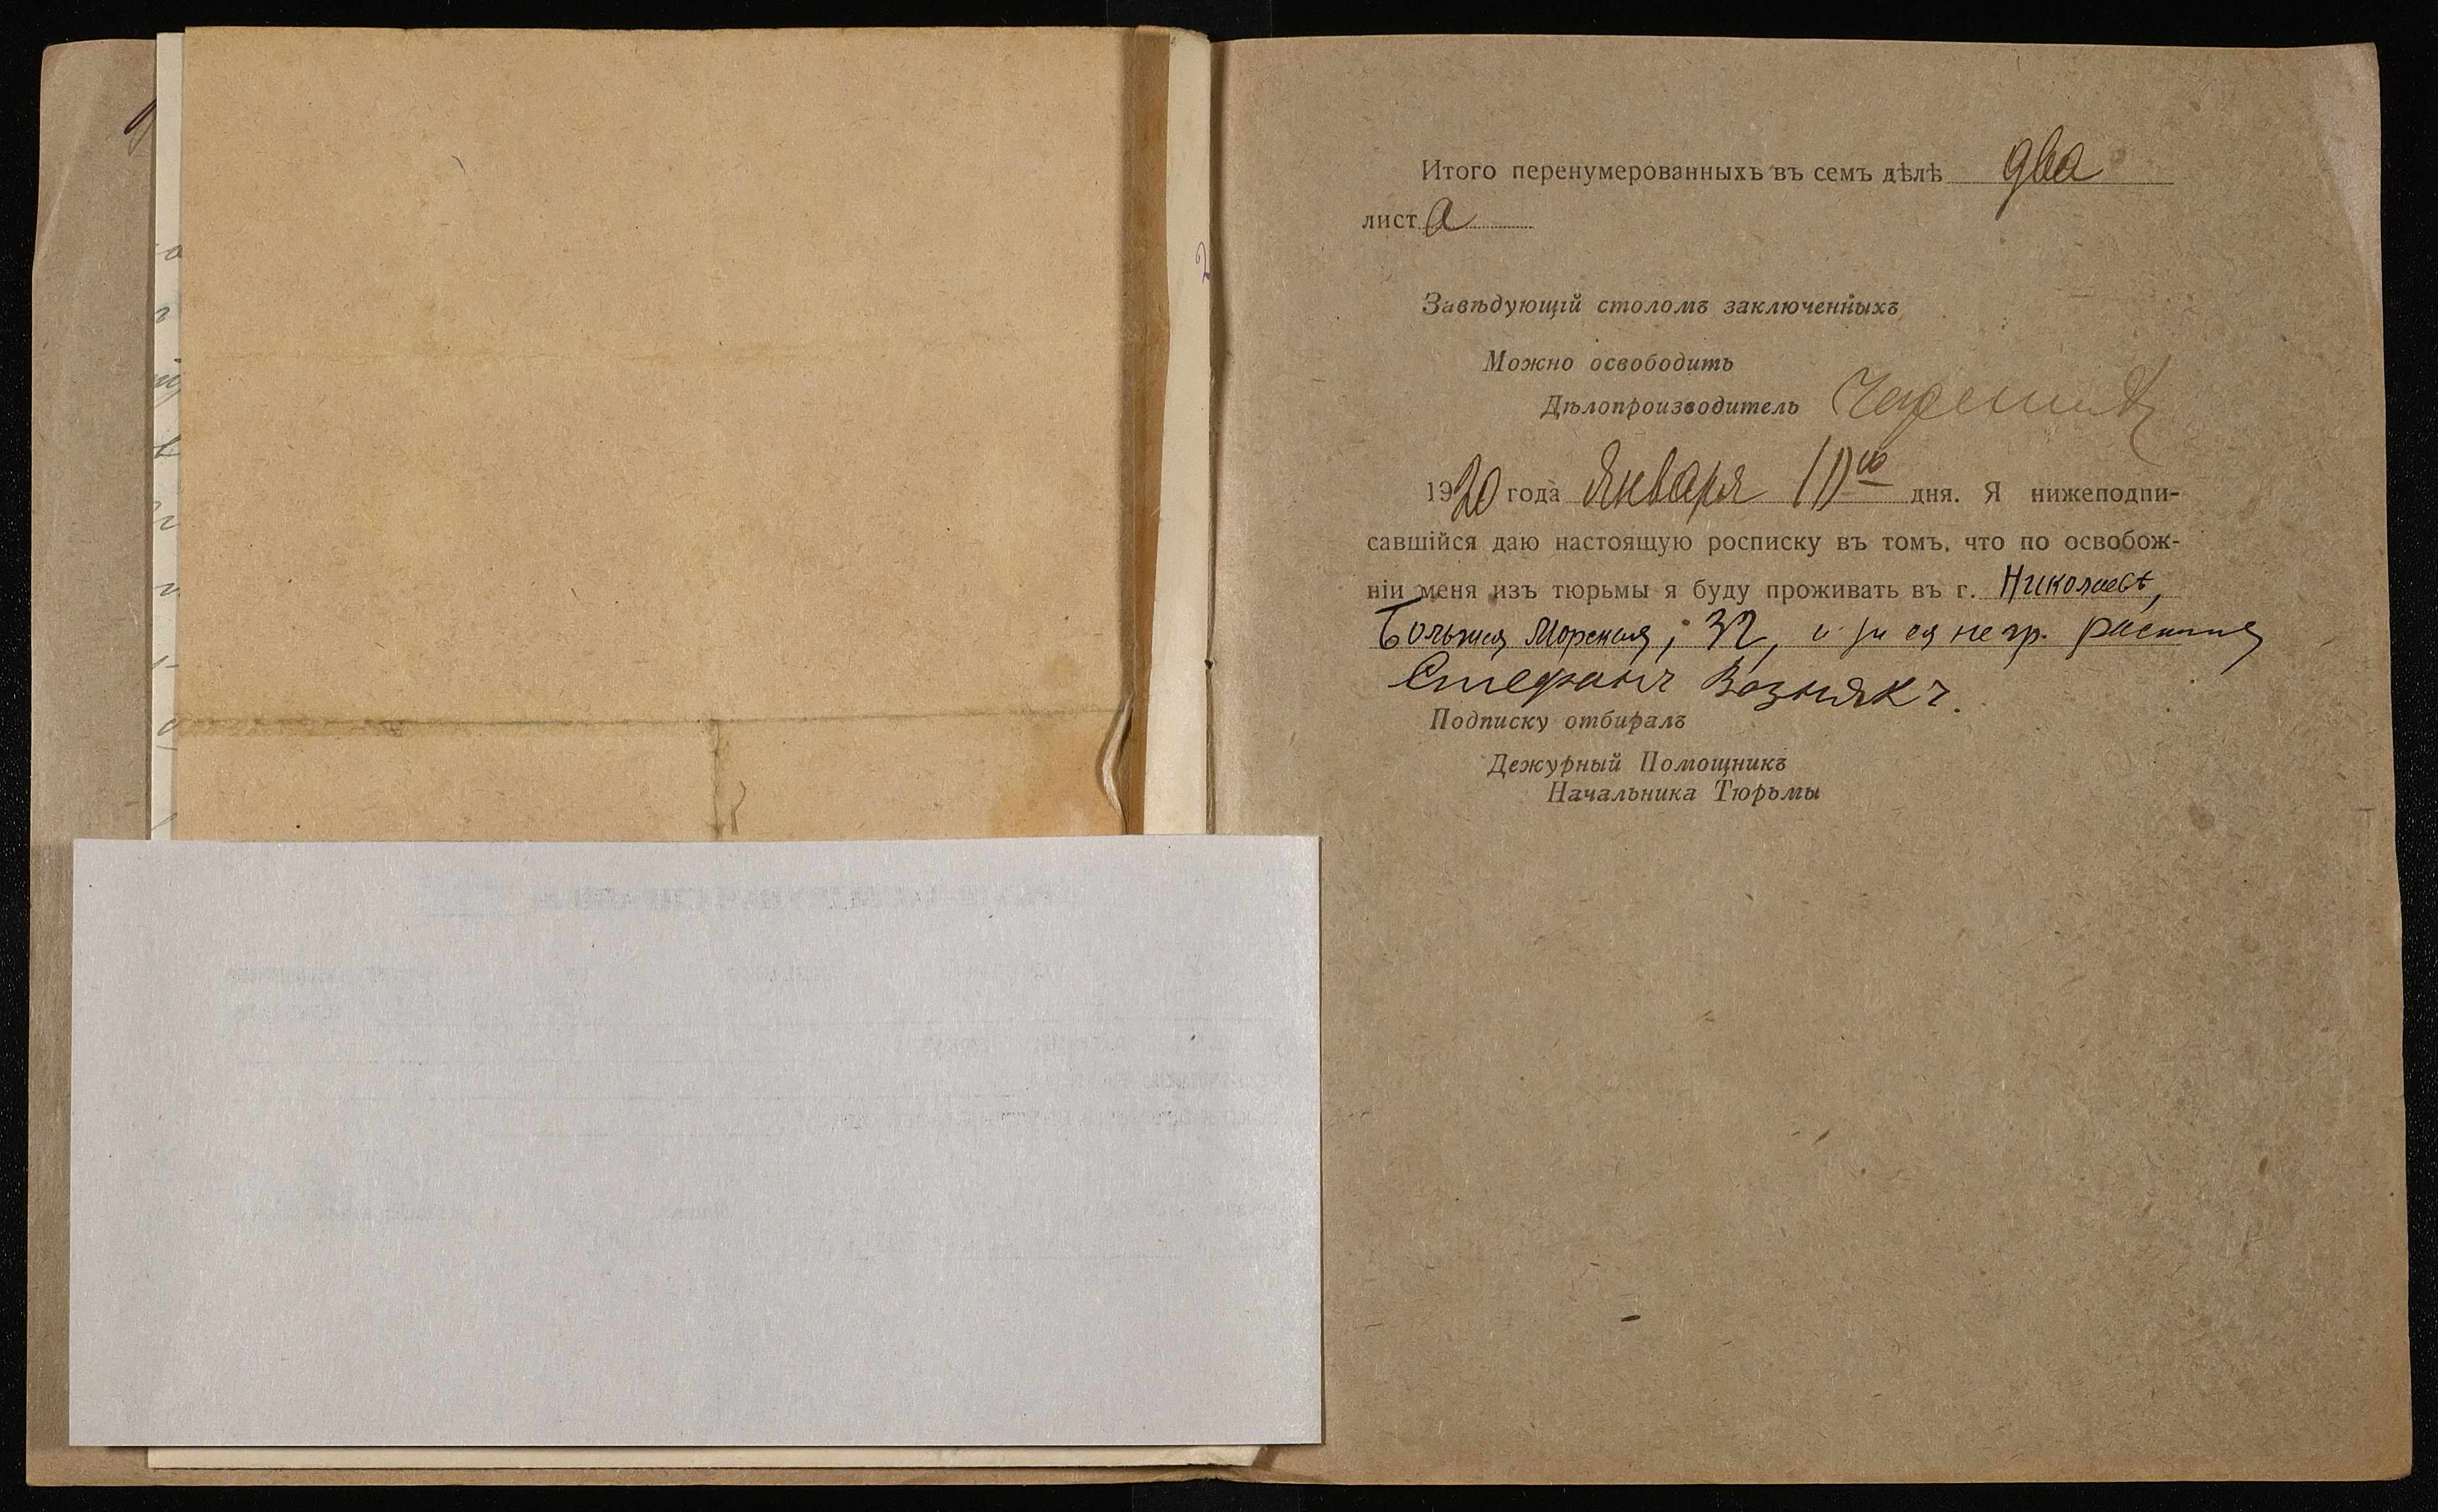 2
Итого перенумерованныхъ въ семъ дѣлѣ два
листа
Завѣдующій столомъ заключенныхъ
Можно освободить
Дѣлопроизводитель
1920 года Января 10го дня. Я нижеподпи-
савшійся даю настоящую росписку въ томъ, что по освобож-
ніи меня изъ тюрьмы я буду проживать въ г. Николаевѣ,
Большая Морская, 32, и за ея негр.
Стефанъ Вознякъ.
Подписку отбиралъ
Дежурный Помощникъ
Начальника Тюрьмы